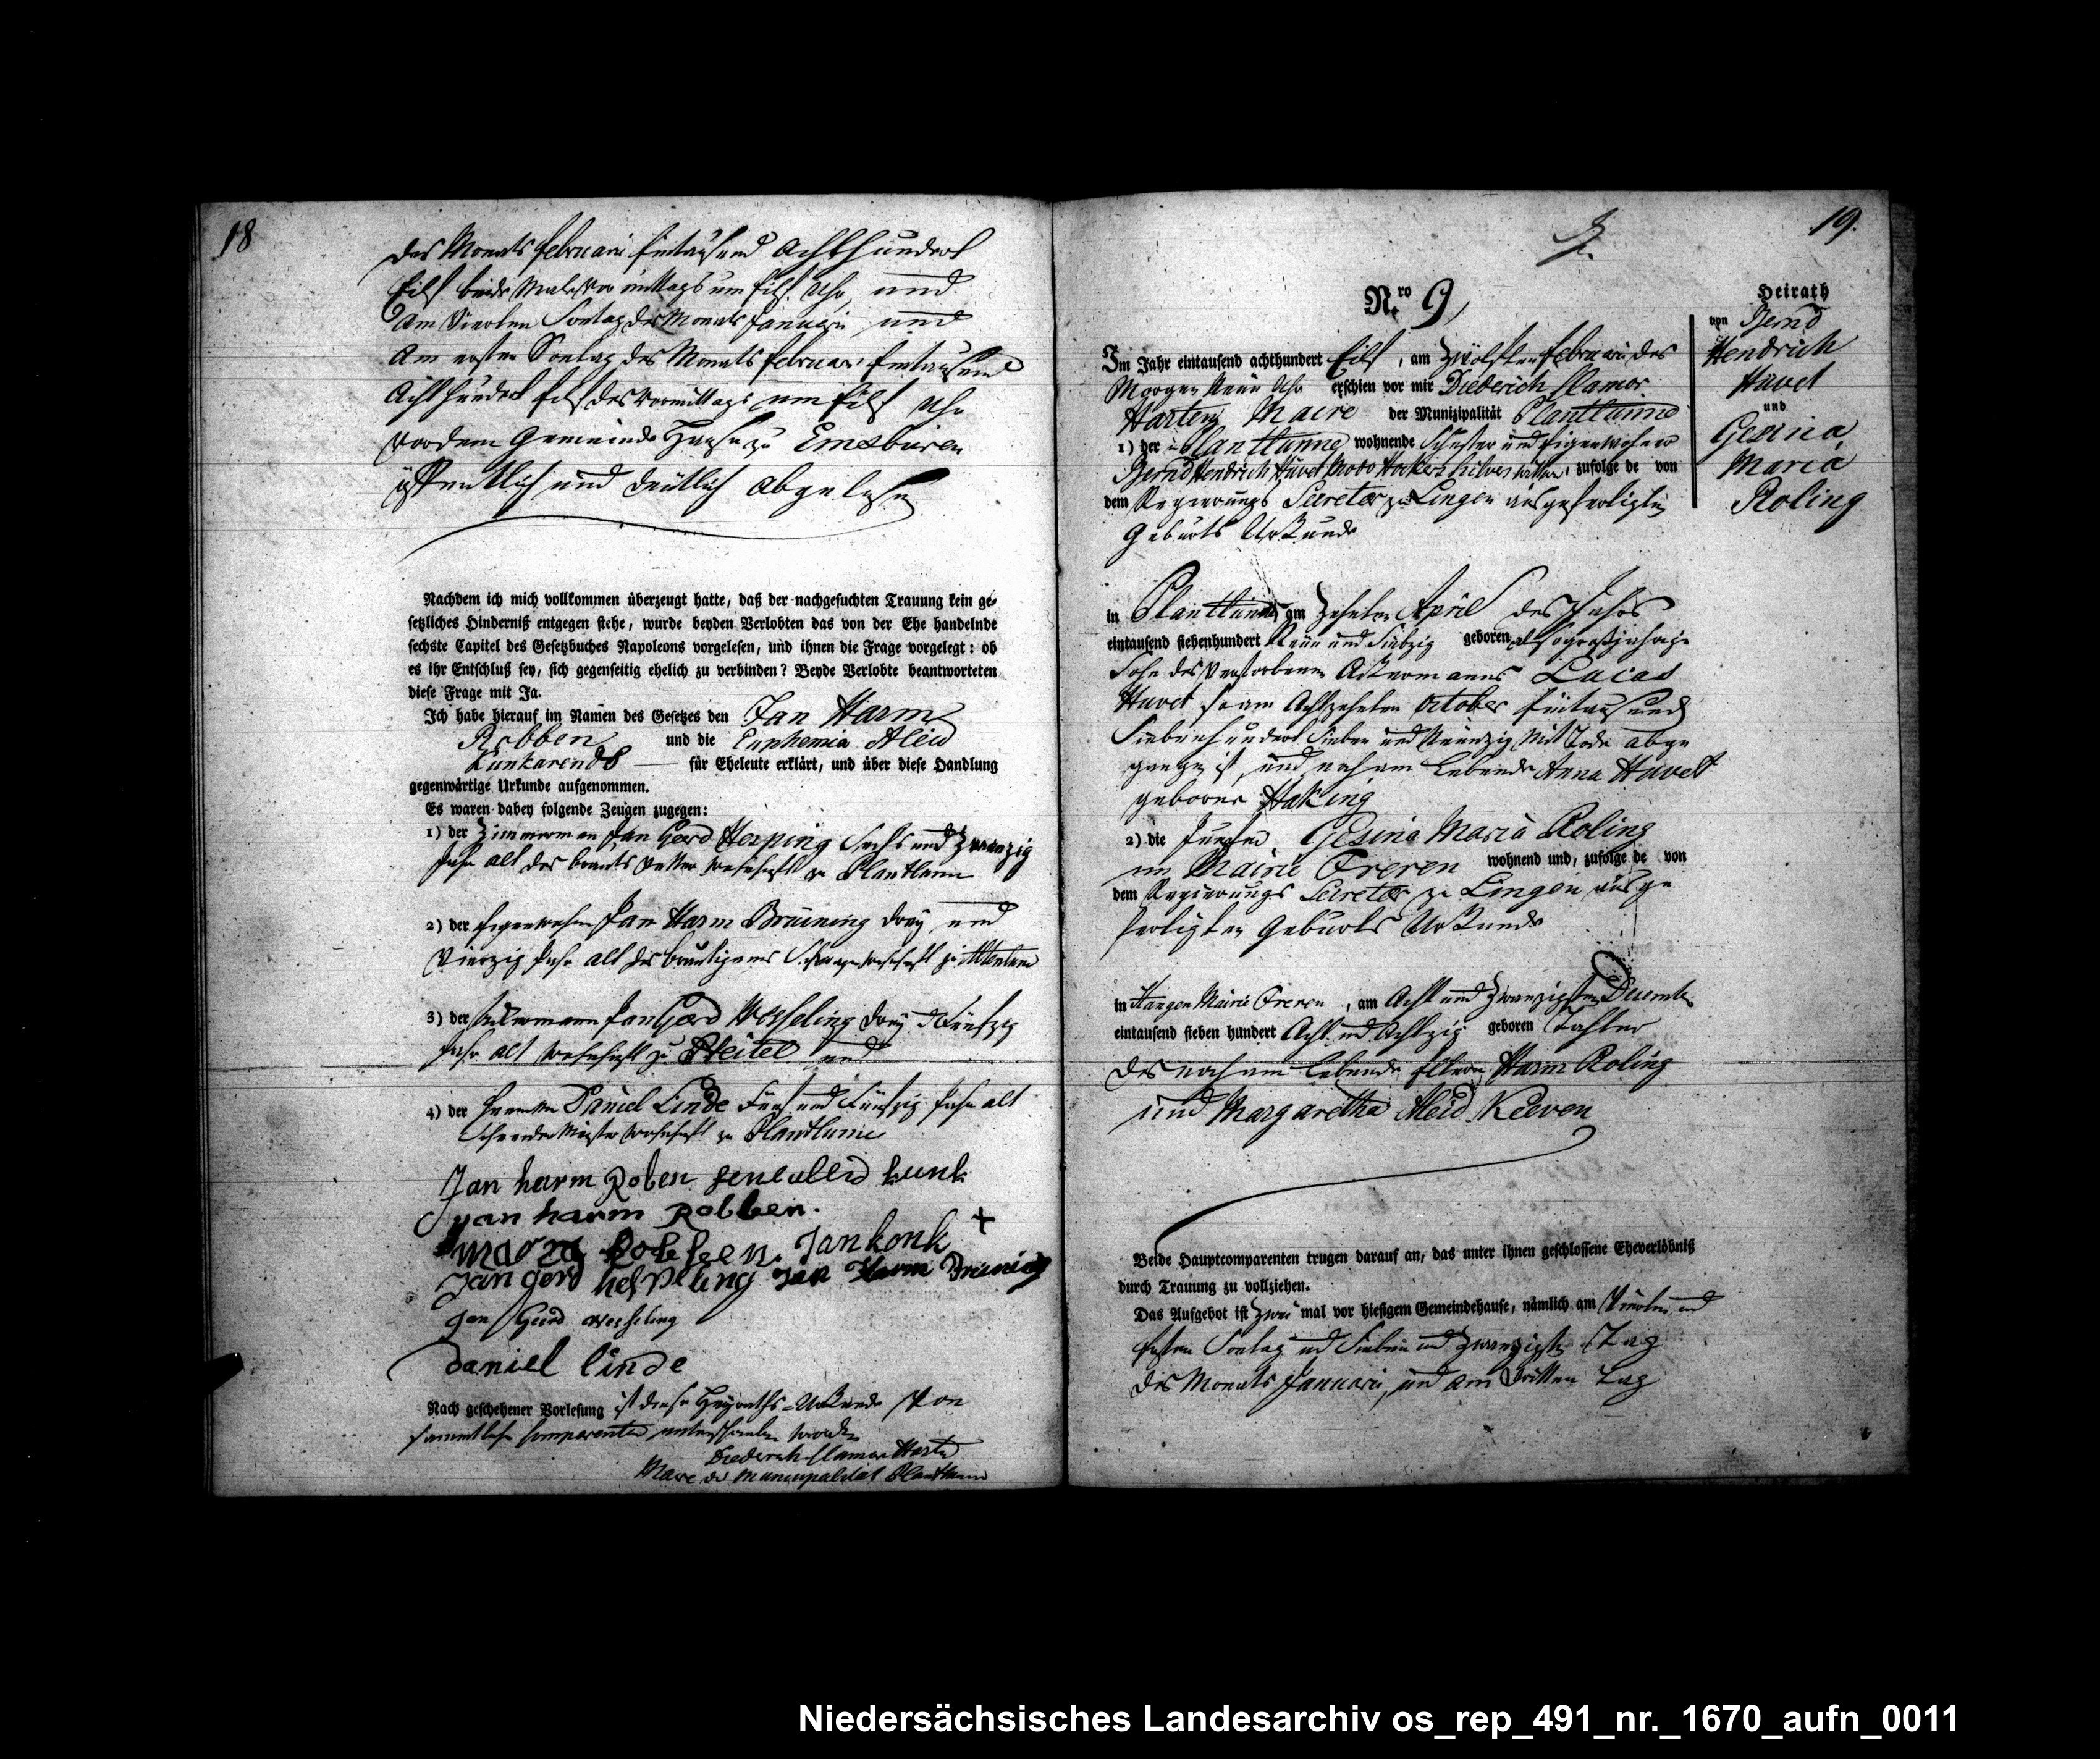 18
des Monats februari Eintausend Achthundert
Eilf beide Male Vormittags um Eilf Uhr, und
Am Vierten Sontag des Monats Januari und
Am ersten Sontag des Monats februari Eintausend
Achthundert Eilf des Vormittags um Eilf Uhr
vor dem Gemeinde Hause zu Emsbüren
öffentlich und deutlich abgelesen
Nachdem ich mich vollkommen überzeugt hatte, daß der nachgesuchten Trauung kein ge-
setzliches Hinderniß entgegen stehe, wurde beyden Verlobten das von der Ehe handelnde
sechste Capitel des Gesetzbuches Napoleons vorgelesen, und ihnen die Frage vorgelegt: ob
es ihr Entschluß sey, sich gegenseitig ehelich zu verbinden? Beyde Verlobte beantworteten
diese Frage mit Ja.
Ich habe hierauf im Namen des Gesetzes den Jan Harm
Robben und die Euphemia Aleid
für Eheleute erklärt, und über diese Handlung
gegenwärtige Urkunde aufgenommen.
Es waren dabey folgende Zeugen zugegen:
1) der Zimmerman Jan Gerd Sechs und Zwanzig
Jahr alt des brauts Vetter wohnhaft zu Plantlünne
2) der Eigenwohner Jan Harm Brüning drey und
Vierzig Jahr alt des bräutigams Schwager wohnhaft zu Altenlünne
3) der Ackermann Jan Gerd Wesseling drey und Fünfzig
Jahr alt wohnhaft zu Heitel und
4) der Daniel Linde Fünf und Fünfzig Jahr alt
Schneider Meister wohnhaft zu Plantlünne
Jan harm Roben kunk
yan harm Robben.
Jan konk +
Jan gerd Jan Harm Brüning
Jan Gerd Wesseling
Daniel linde
Nach geschehener Vorlesung ist diese Heyraths-Urkunde Von
sämmtliche Comparenten unterschrieben worden
Diederich Clamor Harten
Maire der Municipalität Plantlünne
19.
Nro. 9
Heirath
von Bernd
Hendrich
Hüvet
und
Gesina
Maria
Roling
Im Jahr eintausend achthundert Eilf, am Zwölften februari des
Morgen Neun Uhr erschien vor mir Diederich Clamor
Harten Maire der Munizipalität Plantlünne
1) der Plantlünne wohnende Schuster und Eigenwohner
Bernd Hendrich Hüvet zufolge de von
dem Regierungs Secretär zu Lingen ausgefertigten
Geburts Urkunde
in Plantlünne, am Zehnten April des Jahrs
eintausend siebenhundert Neun und Siebzig geboren als großjährige
Sohn des Verstorbenen Ackermanns Lucas
Huvet so am Achtzehnten October Eintausend
Siebenhundert Sieben und Neunzig Mit Tode abge
gangen ist, und noch am Lebende Anna Huvet
geborne Haking
2) die Jungfer Gesina Maria Roling
im Mairie Freren wohnend und, zufolge de von
dem Regierungs Secretär zu Lingen ausge
fertigten Geburts Urkunde
in Hangen Mairie Freren, am Acht und Zwanzigsten December
eintausend sieben hundert Acht und Achtzig geboren Tochter
des noch am Lebende Eltern Harm Roling
und Margaretha Aleid Keeven
Beide Hauptcomparenten trugen darauf an, das unter ihnen geschlossene Eheverlöbniß
durch Trauung zu vollziehen.
Das Aufgebot ist Zwei mal vor hiesigem Gemeindehause, nämlich am Vierten und
Sontag und Sieben und Zwanzigsten Tag
des Monats Januari, und am Dritten Tag
Niedersächsisches Landesarchiv os_rep_491_nr._1670_aufn_0011